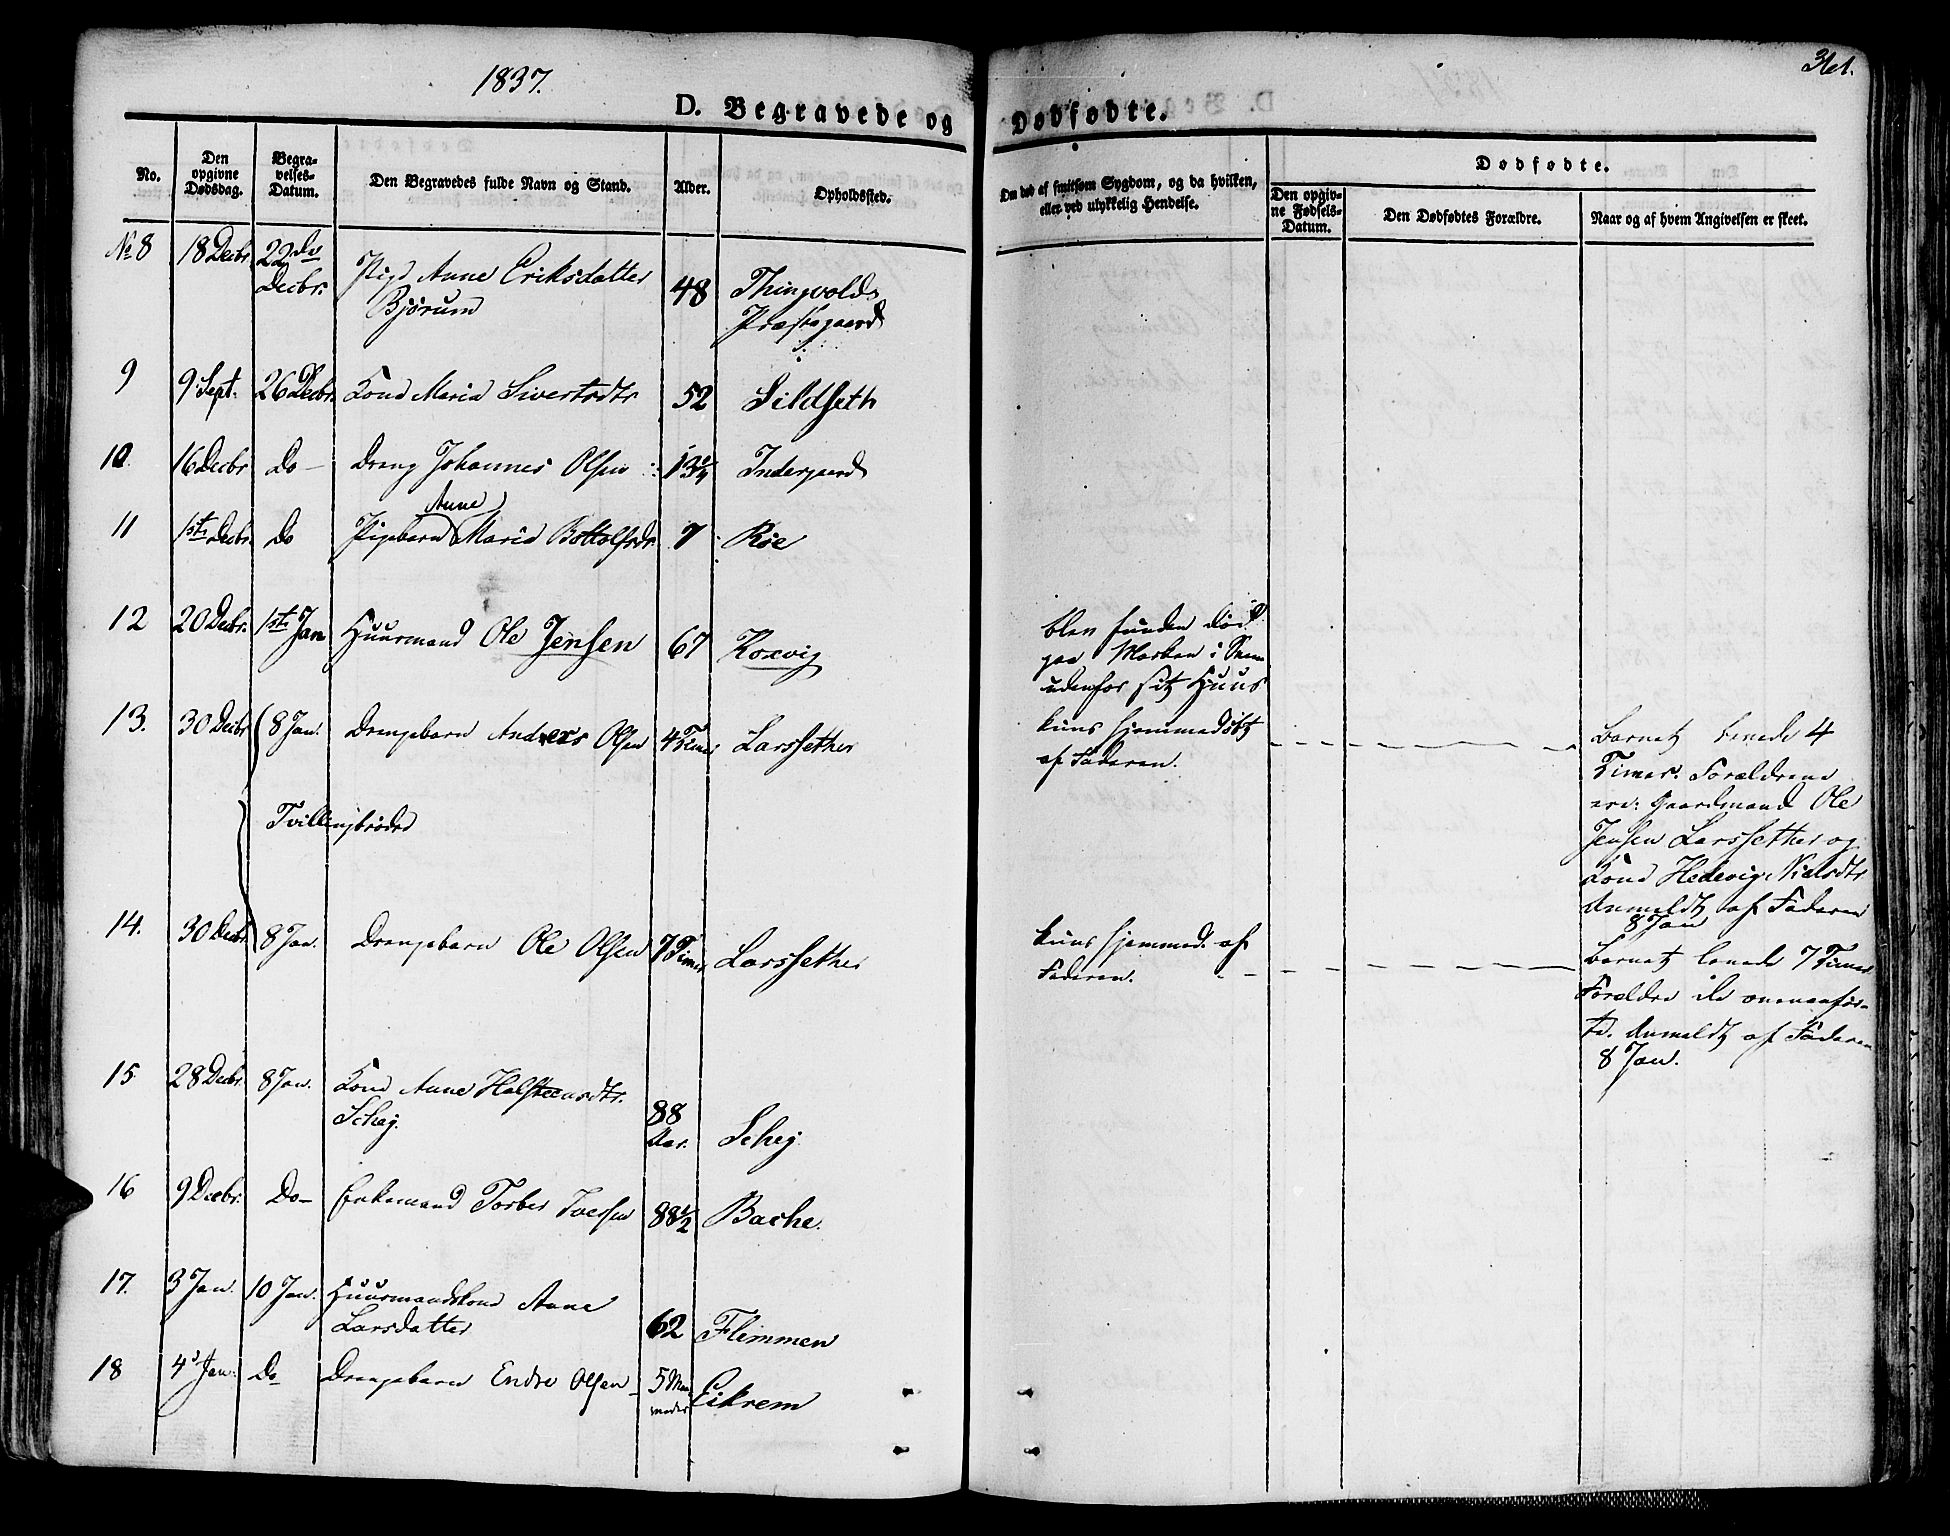 1837.
361.
D. Begravede og Dødfødte.
No.
Den opgivne Dødsdag.
Begravelses-Datum.
Den Begravedes fulde Navn og Stand.
Alder.
Opholdssted.
Om død af smitsom Sygdom, og da hvilken, eller ved ulykkelig Hendelse.
Dødfødte.
Den opgivne Fødsels-Datum.
Den Dødfødtes Forældre.
Naar og af hvem Angivelsen er skeet.
No 8 18 Decbr 22de Decbr. Pige Anne Eriksdatter 48 Thingvolds
Bjørum Præstegaard
9 9 Sept. 26 Decbr. Kone Maria Sivertsdtr 52 Sildseth
10. 16 Decbr Do Dreng Johannes Olsen 13 1/4 Indergaard
11 1ste Decbr. Do Pigebarn Anne Maria Bottolfsdr. 7 Røe
12 20 Decbr. 1ste Jan Huusmand Ole Jensen 67 Koxvig
blev funden død
paa Marken i Snee
udenfor sit Huus
13. 30 Decbr 8 Jan. Drengebarn Anders Olsen 4 Timer Larssether
kuns hjemmedøbt
af Faderen.
Barnet levede 4
Timer. Forældrene
ere: Gaardmand Ole
Jensen Larssether og
Kone Hedevig Nielsdtr
Anmeldt af Faderen
8 Jan
Tvillingbrødre
14. 30 Decbr. 8 Jan. Drengebarn Ole Olsen 7 Timer Larssether
kuns hjemmed. af
Faderen.
Barnet levede 7 Timer
Forældre de ovenanfør-
te. Anmeldt af Faderen
8 Jan.
15 28 Decbr. 8 Jan. Kone Anne Halsteensdtr. 88 Aar. Schej
Schej.
16 9 Decbr. Do Enkemand Torber Iversen 88 1/2 Bache.
17. 3 Jan. 10 Jan. Huusmandskone Anne
Larsdatter 62 Flemmen
18 4 Jan. Do Drengebarn Endre Olsen 5 Maaneder Eikrem